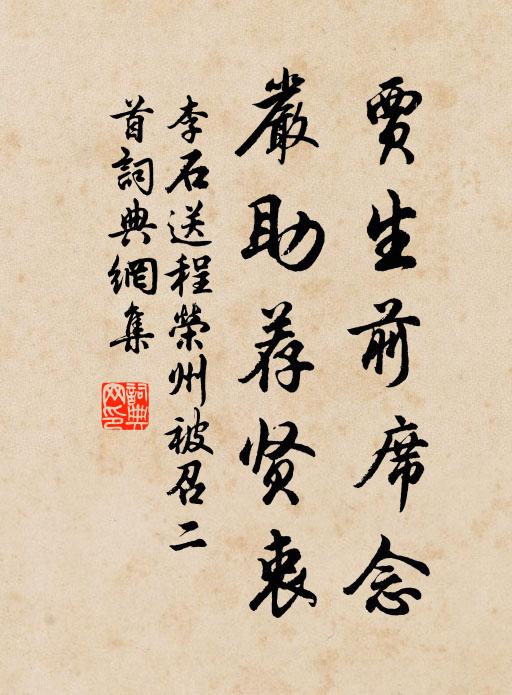 賈生前席念
嚴助荐贤衷
李石送程榮州被召二
首詞典網集
詞典
网印